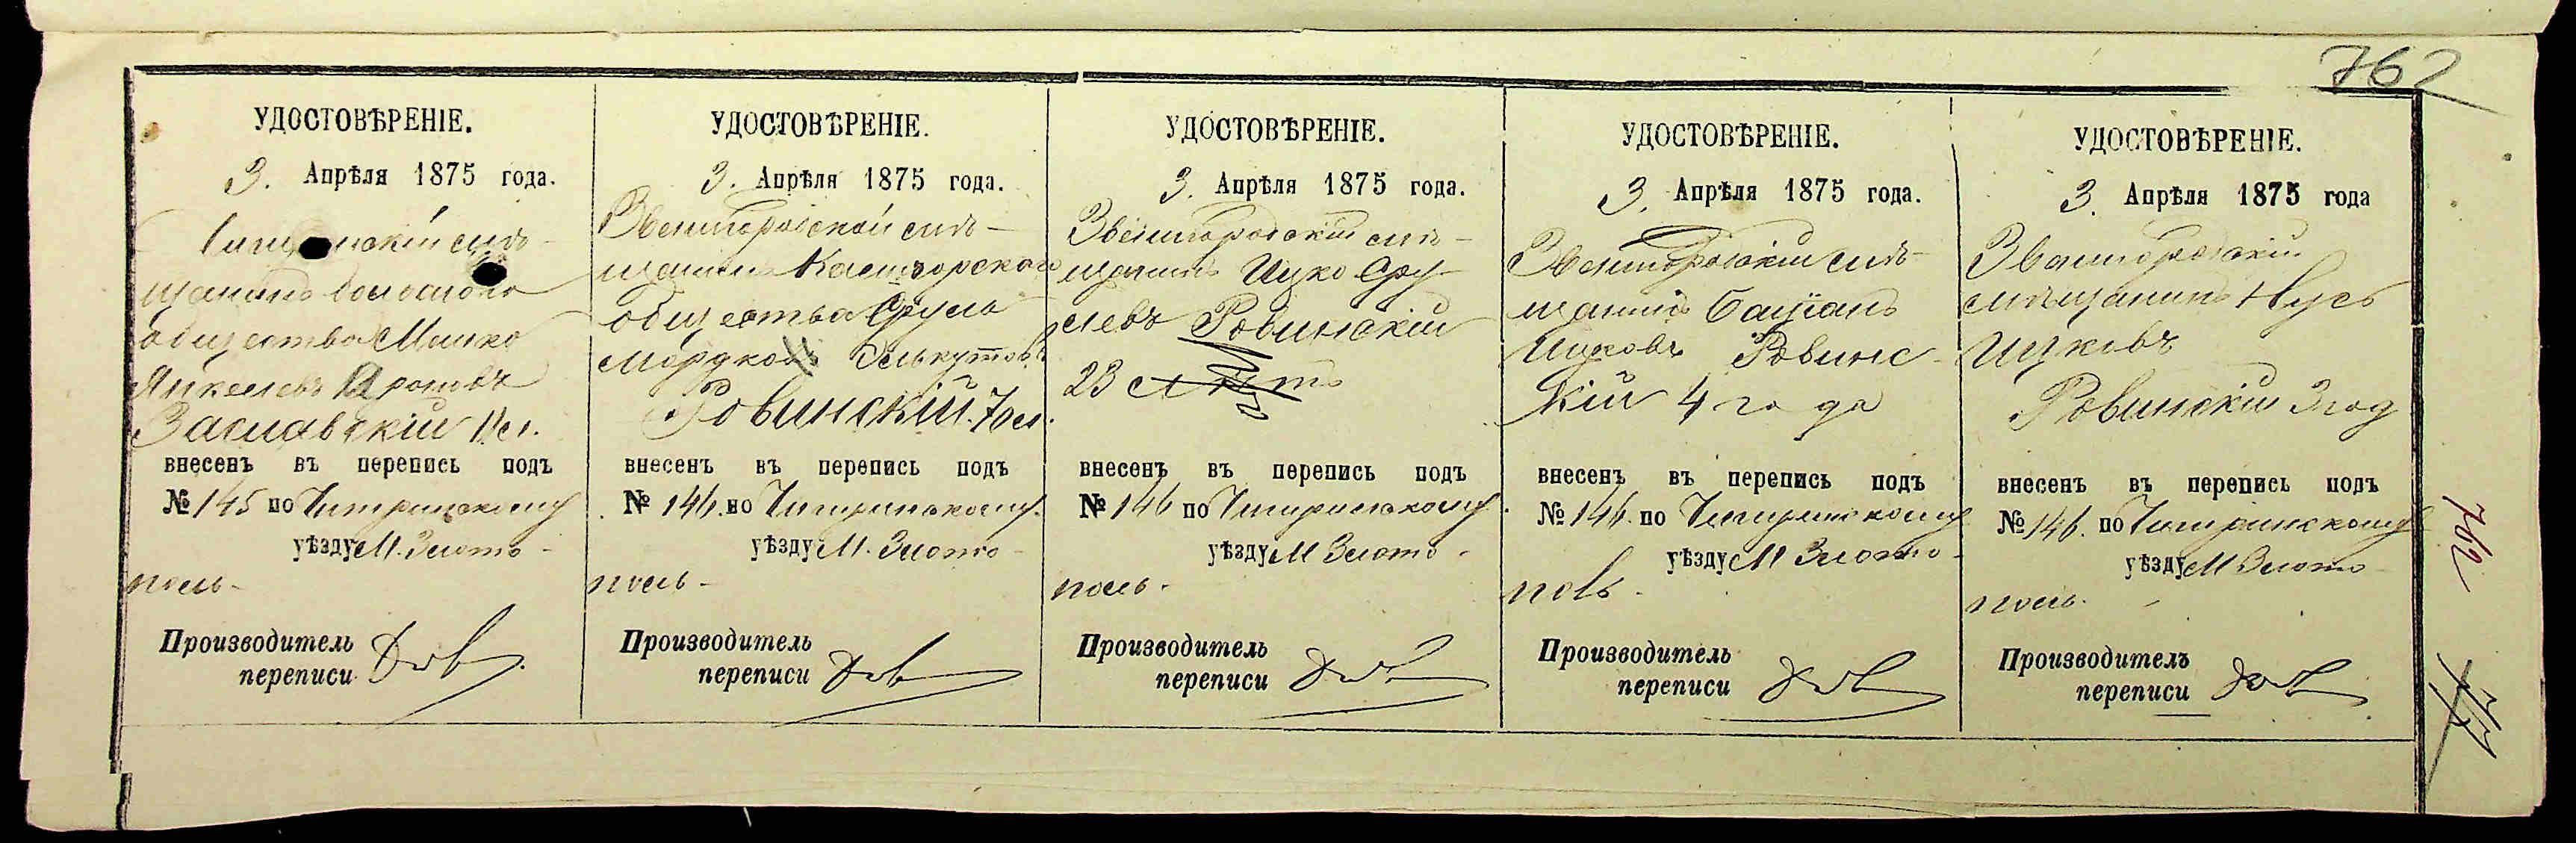 762
УДОСТОВѢРЕНІЕ.
3. Апрѣля 1875 года.
щанинъ
общества Мошко
Янкелевъ Ароновъ
Заславскій 11 л.
внесенъ въ перепись подъ
№ 145 по Чигиринскому
уѣзду М. Злото-
поль-
Производитель
переписи
УДОСТОВѢРЕНІЕ.
3. Апрѣля 1875 года.
Звенигородскій мѣ-
щанинъ
общества Сруль
Мордковъ
Ровинскій. 70 л.
внесенъ въ перепись подъ
№ 146. по Чигиринскому.
уѣзду М. Злото-
поль-
Производитель
переписи
УДОСТОВѢРЕНІЕ.
3. Апрѣля 1875 года.
Звенигородскій мѣ-
щанинъ Ицко Сру-
левъ Ровинскій
23 лѣтъ
внесенъ въ перепись подъ
№ 146 по Чигиринскому
уѣзду М Злото-
поль-
Производитель
переписи
УДОСТОВѢРЕНІЕ.
3. Апрѣля 1875 года.
Звенигородскій мѣ-
щанинъ
Ицковъ Ровинс-
кій 4 года
внесенъ въ перепись подъ
№ 146. по Чигиринскому
уѣзду М Злото-
поль-
Производитель
переписи
УДОСТОВѢРЕНІЕ.
3. Апрѣля 1875 года
Звенигородскій
мѣщанинъ Нусь
Ицковъ
Ровинскій 3 год
внесенъ въ перепись подъ
№ 146. по Чигиринскому
уѣзду М Злото-
поль-
Производитель
переписи
762